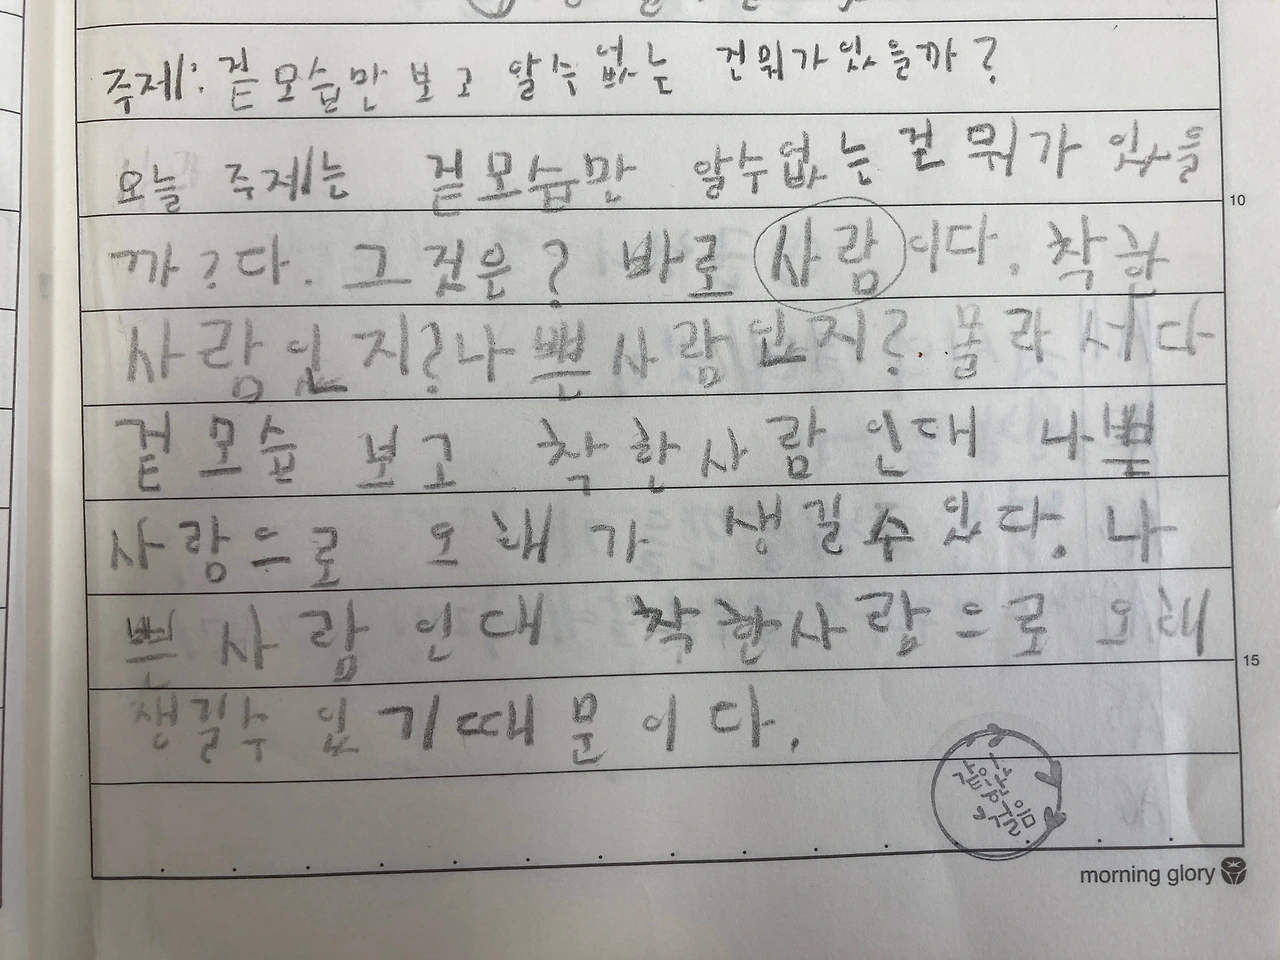 주제: 겉모습만 보고 알수없는 건뭐가있을까?
오늘 주제는 겉모습만 알수없는 건 뭐가 있을
10
까? 다. 그것은? 바로 사람이다. 착한
사람인지? 나쁜사람인지? 몰라서다
겉모습 보고 착한사람인대 나쁜
사람으로 오해가 생길수있다. 나
쁜사람인대 착한사람으로 오해
15
생길수 있기때문이다.
morning glory